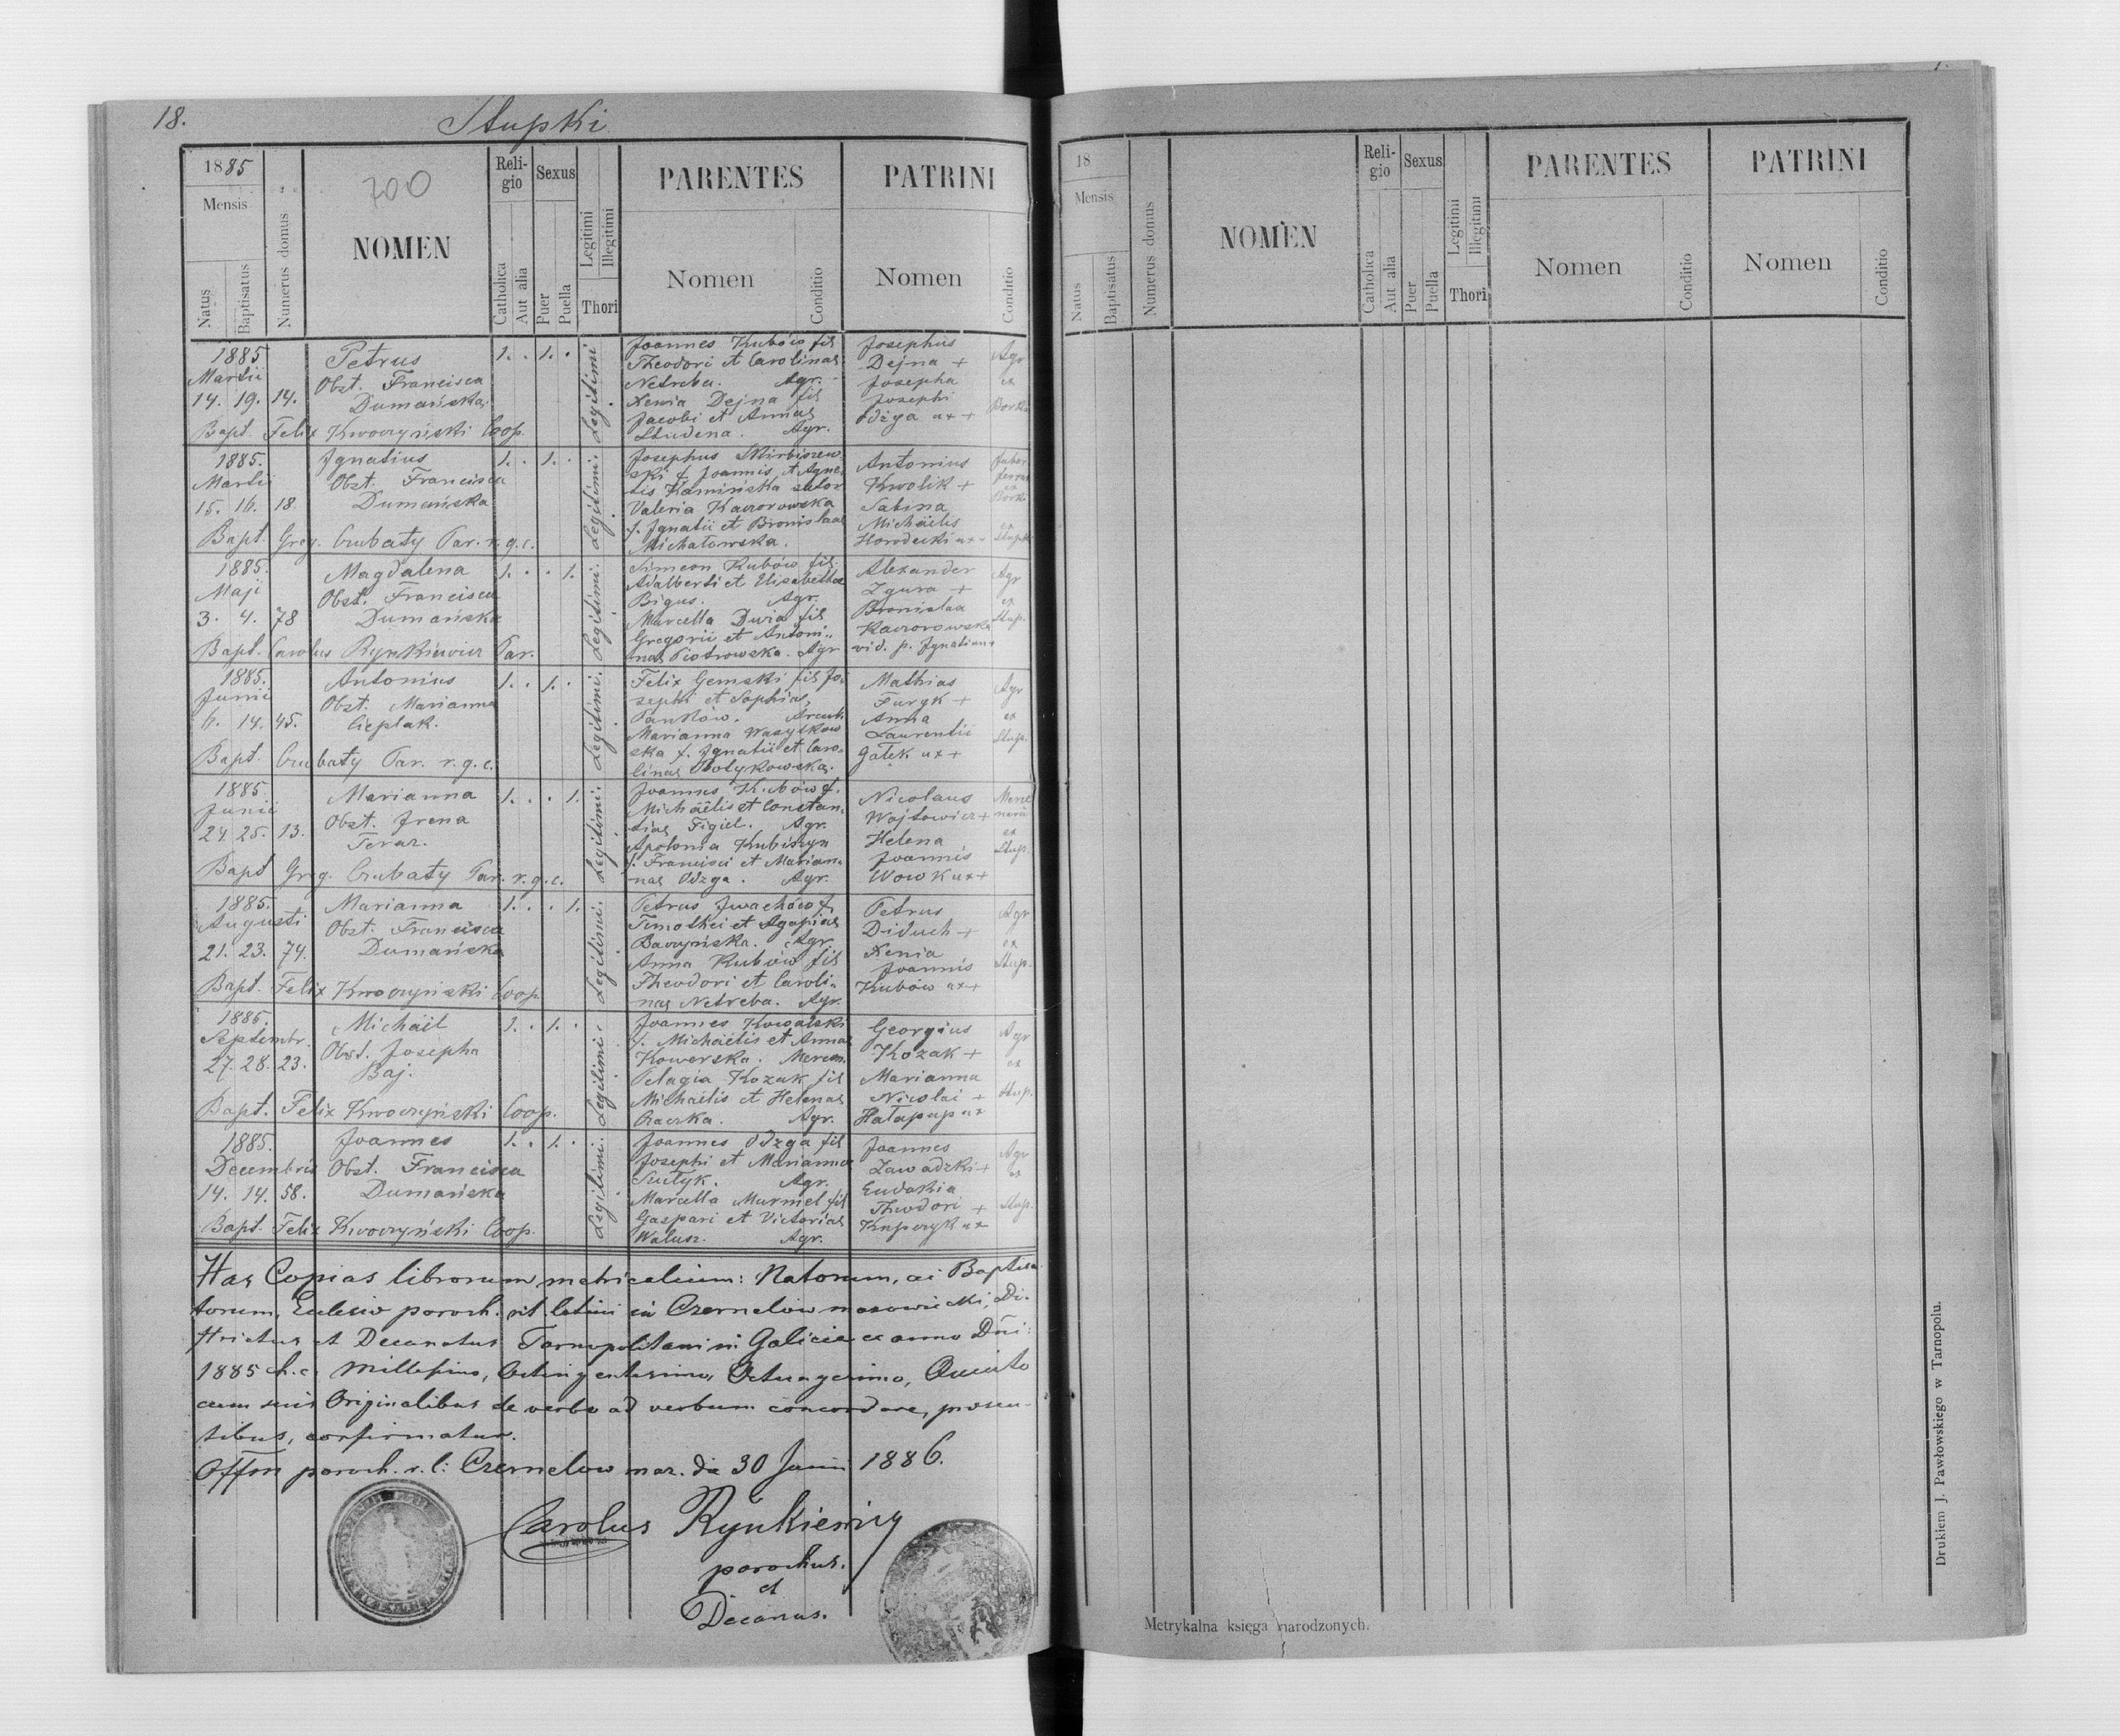 18.
Stupki
1885
Mensis
Natus
Baptisatus
Numerus domus
700
NOMEN
Reli-
gio
Catholica
Aut alia
Sexus
Puer
Puella
Legitimi
Illegitimi
Thori
PARENTES
Nomen
Conditio
PATRINI
Nomen
Conditio
1885
Martii
14. 19. 14.
Petrus
Obst. Francisca
Dumańska.
Bapt. Felix Kwoczyński Coop.
1. . 1. .
Legitimi.
Joannes Kubów fil
Theodori et Carolinae
Netreba. Agr.
Xenia Dejna fil
Jacobi et Annae
Studena. Agr.
Josephus
Dejna +
Josepha
Josephi
Odzga ux +
Agr
ex
1885.
Martii
15. 16. 18.
Ignatius
Obst. Francisca
Dumańska
Bapt. Greg. Czubaty Par. r.g.c.
1. . 1. .
Legitimi.
Josephus
ski f. Joannis et Agne-
tis Kamińska sutor
Valeria Kaczorowska
f. Ignatii et Bronislaae
Michałowska.
Antonius
Kwolik +
Sabina
Michäelis
Horodecki ux +
ex
1885.
Maji
3. 4. 78
Magdalena
Obst. Francisca
Dumańska
Bapt. Carolus Rynkiewicz Par.
1. . . 1.
Legitimi.
Simeon Kubów fil.
Adalberti et Elisabethae
Bigus. Agr.
Marcella fil
Gregorii et Antoni-
nae Piotrowska. Agr
Alexander
Zgura +
Bronislaa
Kaczorowska
vid. p. Ignatium +
Agr
ex
Stup.
1885.
Junii
6. 14. 45.
Antonius
Obst. Marianna
Cieplak.
Bapt. Czubaty Par. r.g.c.
1. . 1. .
Legitimi.
Felix Gemski fil Jo-
sephi et Sophiae
Pawłów.
Marianna Wasylkow
ska f. Ignatii et Caro-
linae
Mathias
Furyk +
Anna
Laurentii
Gałek ux +
Agr
ex
Stup.
1885.
Junii
24. 25. 13.
Marianna
Obst. Irena
Bapt Greg. Czubaty Par. r.g.c.
1. . . 1.
Legitimi.
Joannes Kubów f.
Michäelis et Constan-
tiae Figiel. Agr.
Apolonia Kubiszyn
f. Francisci et Marian-
nae Odzga. Agr.
Nicolaus
Wojtowicz +
Helena
Joannis
Wowk ux +
ex
Stup.
1885.
Augusti
21. 23. 74.
Marianna
Obst. Francisca
Dumańska
Bapt. Felix Kwoczyński Coop.
1. . . 1.
Legitimi.
Petrus Iwachów f.
Timothei et Agapiae
Baczyńska. Agr
Anna Kubów fil
Theodori et Caroli-
nae Netreba. Agr.
Petrus
Diduch +
Xenia
Joannis
Kubów ux +
Agr
ex
Stup.
1885.
Septembr.
27. 28. 23.
Michäel
Obst. Josepha
Baj.
Bapt. Felix Kwoczyński Coop.
1. . 1. .
Legitimi.
Joannes Kowalski
f. Michäelis et Annae
Kowerska. Mercen.
Pelagia Kozak fil
Michäelis et Helenae
Agr.
Georgius
Kozak +
Marianna
Nicolai +
Hałapup ux
Agr
ex
Stup.
1885.
Decembris
14. 14. 58.
Joannes
Obst. Francisca
Dumańska
Bapt. Felix Kwoczyński Coop.
1. . 1. .
Legitimi.
Joannes Odzga fil
Josephi et Mariannae
Agr.
Marcella Murmel fil
Gaspari et Victoriae
Walusz. Agr.
Joannes
Zawadzki +
Eudokia
Theodori +
Kupczyk ux
Agr
ex
Stup.
Has Copias librorum metricalium: Natorum, ac Baptisa-
torum, Eclesiæ paroch. rit. latini in Czernelow mazowiecki, Di-
strictus et Decanatus Tarnopolitani in Galicia ex anno Dñi:
1885 h. e. Millesimo, Octingentesimo, Octuagesimo, Quinto
cum suis Originalibus de verbo ad verbum concordare, præsen-
tibus, confirmatur.
Offm paroch. r. l: Czernelow maz. die 30 Junii 1886.
Carolus Rynkiewicz
parochus.
et
Decanus.
18
Mensis
Natus
Baptisatus
Numerus domus
NOMEN
Reli-
gio
Catholica
Aut alia
Sexus
Puer
Puella
Legitimi
Illegitimi
Thori
PARENTES
Nomen
Conditio
PATRINI
Nomen
Conditio
Metrykalna księga narodzonych.
Drukiem J. Pawłowskiego w Tarnopolu.